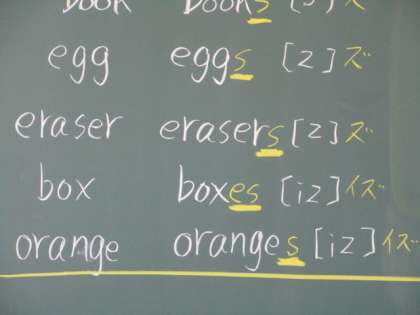 book books [s] ズ
egg eggs [z] ズ
eraser erasers [z] ズ
box boxes [iz] イズ
orange oranges [iz] イズ